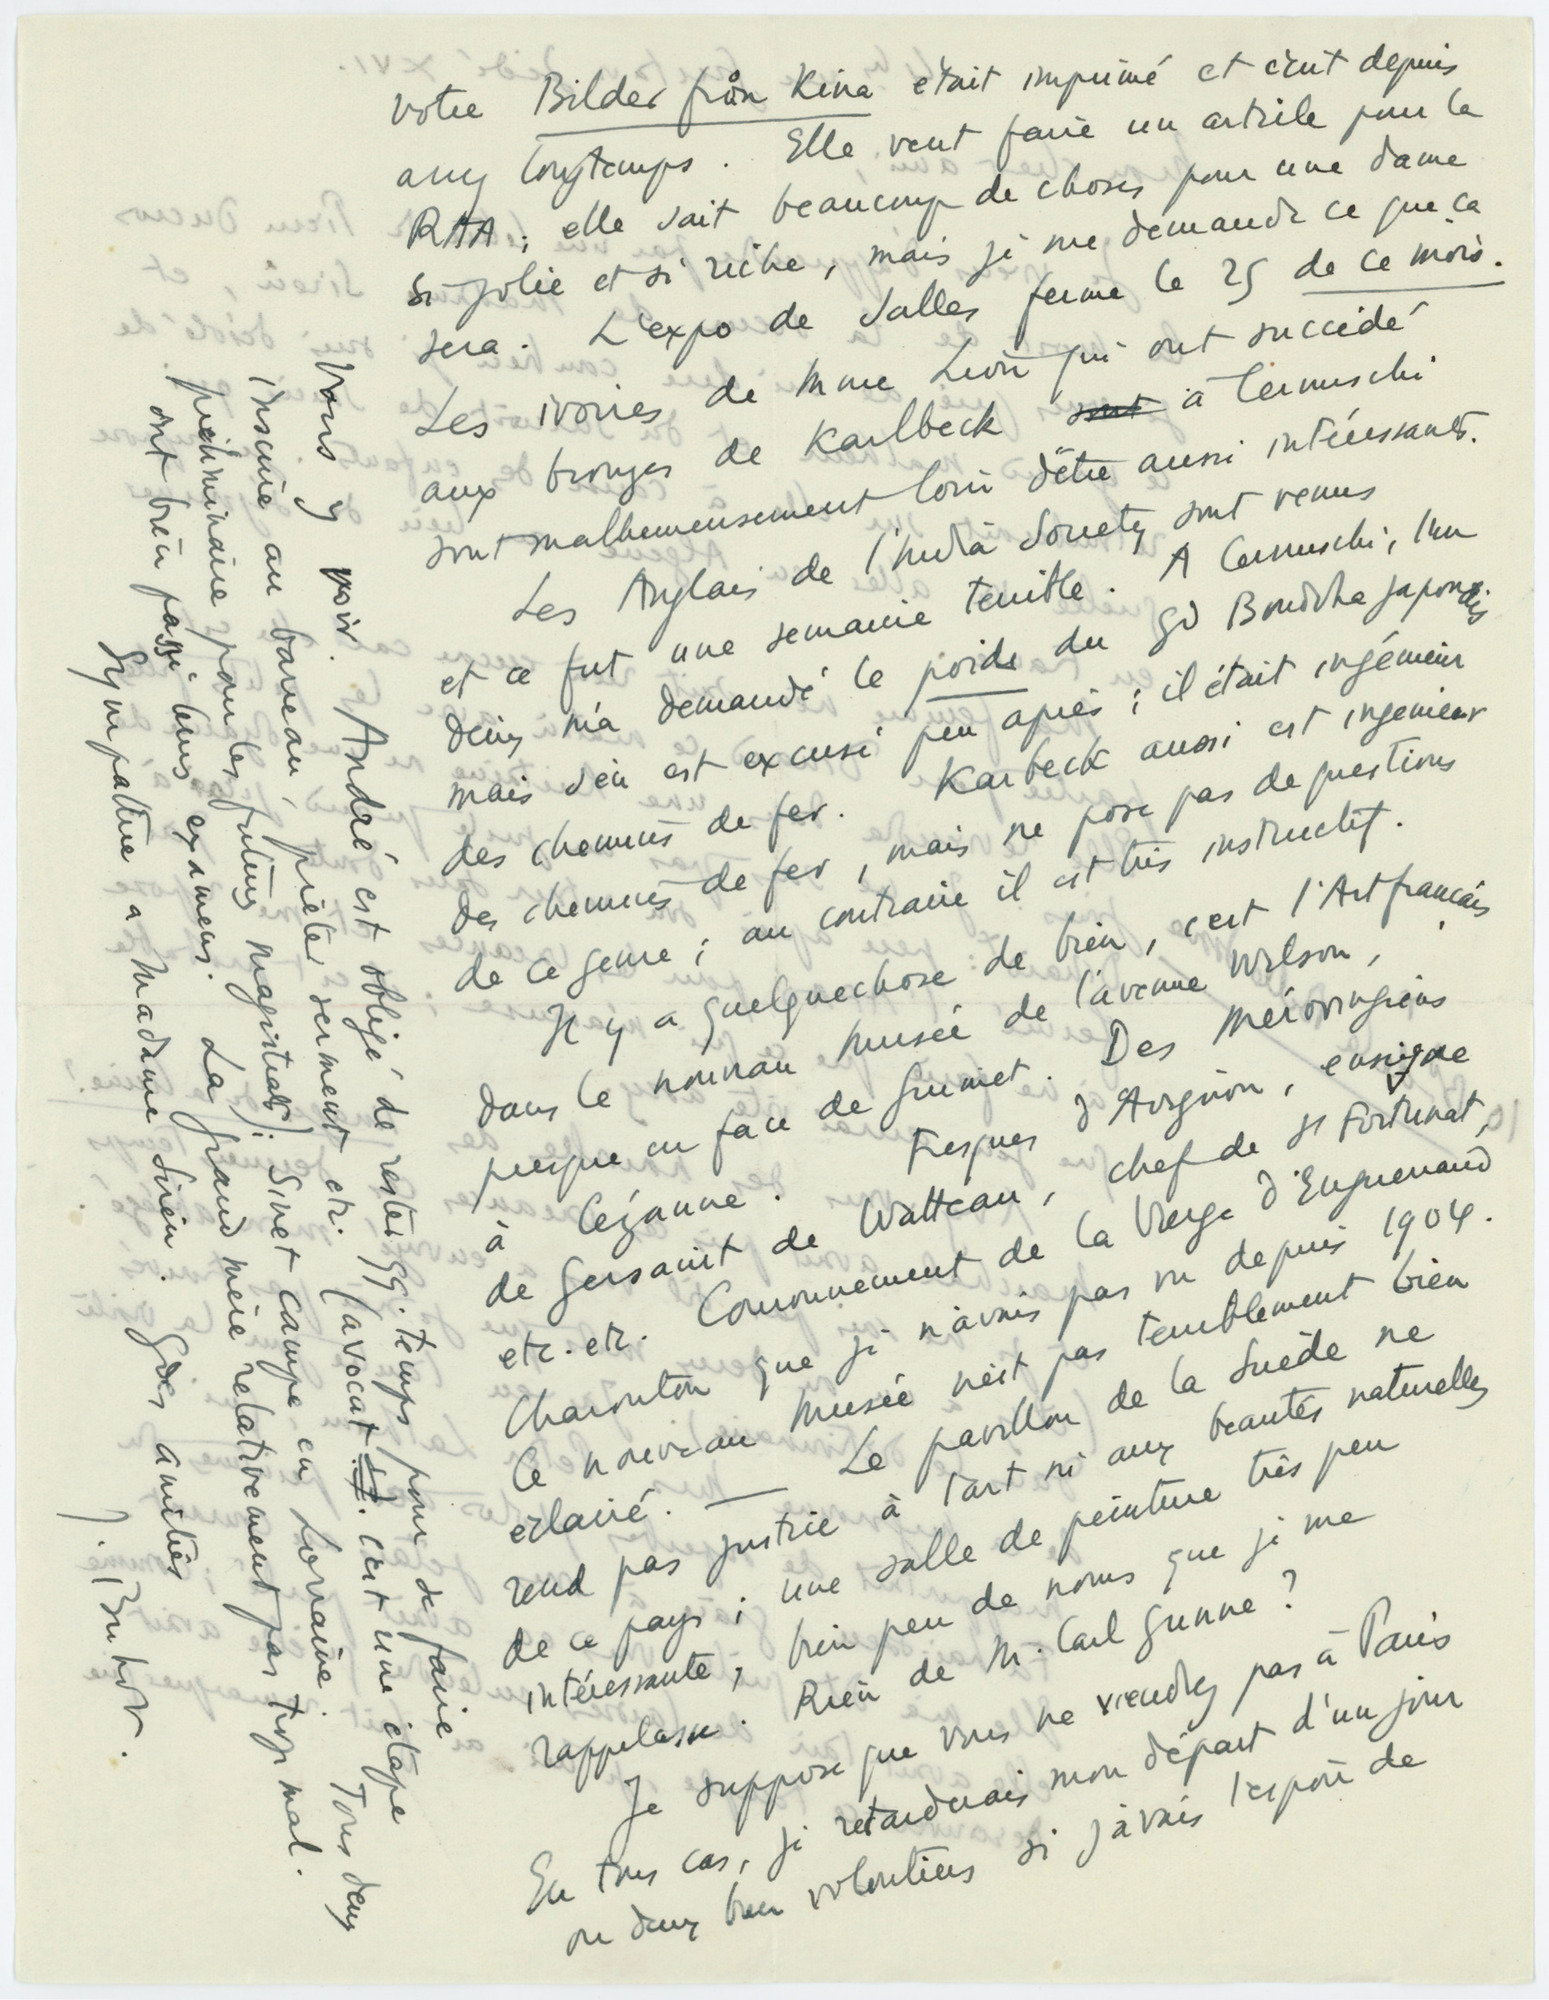 votre Bilder från Kina était imprimé et écrit depuis
assez longtemps. Elle veut faire un article pour la
RAA; elle sait beaucoup de choses pour une dame
si jolie et si riche, mais je me demande ce que ça
sera. L'expo de Salles ferme le 25 de ce mois.
Les ivoires de Mme Léon qui ont succédé
aux bronzes de Karlbeck sont à Cernuschi
sont malheureusement loin d'être aussi intéressants.
Les Anglais de l'India Society sont venus
et ce fut une semaine terrible. A Cernuschi, l'un
deux m'a demandé le poids du gd Bouddha japonais
mais s'en est excusé peu après; il était ingénieur
des chemins de fer. Karbeck aussi est ingénieur
des chemins de fer, mais ne pose pas de questions
de ce genre; au contraire il est très instructif.
Il y a quelquechose de bien, c'est l'Art français
dans le nouveau Musée de l'avenue Wilson,
presque en face de Guimet. Des Mérovingiens
à Cézanne. Fresques d'Avignon, enseigne
de Gersaint de Watteau, chef de St Fortunat,
etc. etc. Couronnement de la Vierge d'Enguerrand
Charonton que je n'avais pas vu depuis 1904.
Ce nouveau Musée n'est pas terriblement bien
éclairé. — Le pavillon de la Suède ne
rend pas justice à l'art ni aux beautés naturelles
de ce pays; une salle de peinture très peu
intéressante, bien peu de noms que je me
rappelasse. Rien de M. Carl Gunne?
Je suppose que vous ne viendrez pas à Paris
En tous cas, je retarderais mon départ d'un jour
ou deux bien volontiers si j'avais l'espoir de
vous y voir. André est obligé de rester qq. temps pour se faire
inscrire au barreau, prêter serment etc. (avocat. c'est une étape
préliminaire pour les futurs magistrats); Sinet campe en Lorraine. Tous deux
ont bien passé leurs examens. La grand mère relativement pas trop mal.
Sympathie à Madame Sirén. Gdes amitiés
J. Buhot.